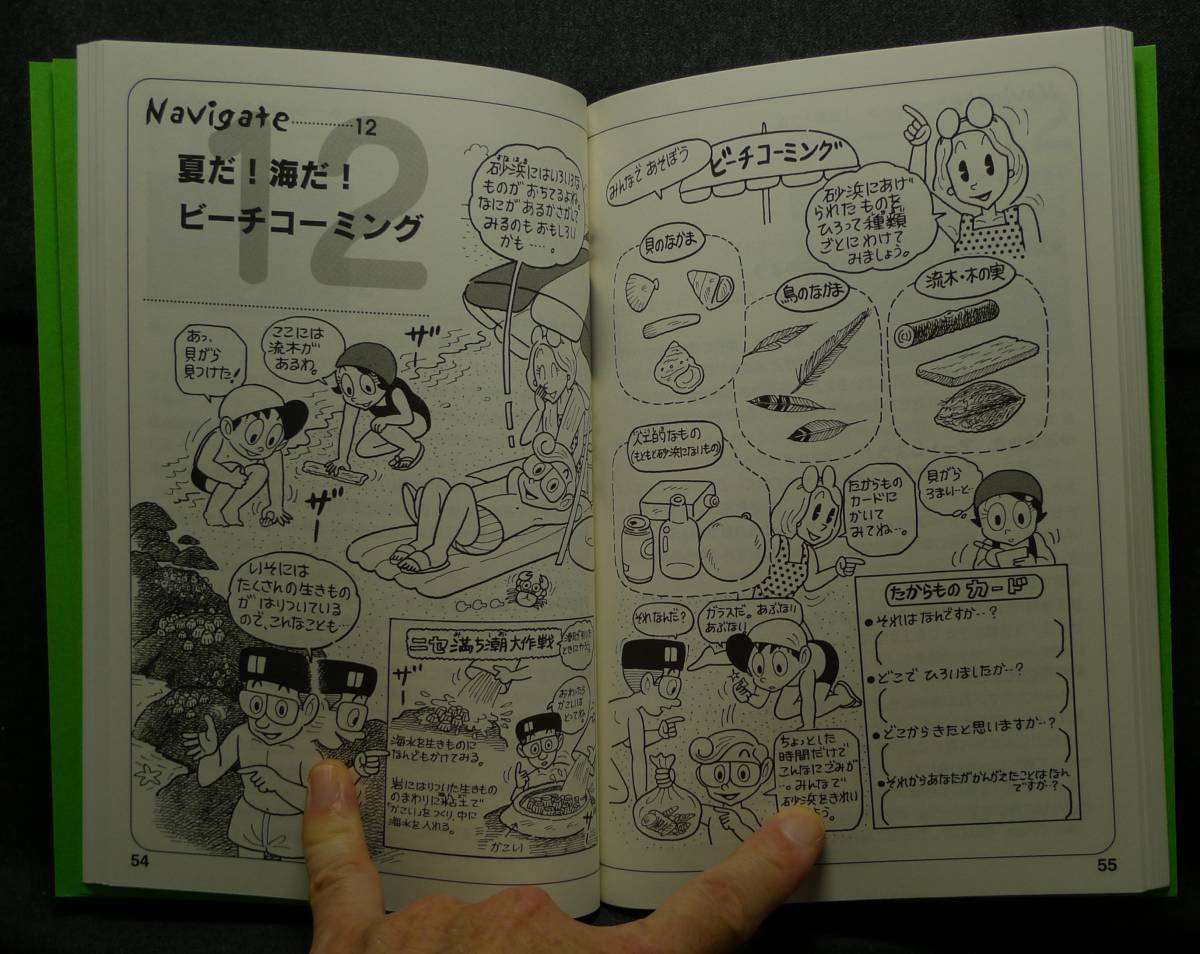 Navigate…………12
12
夏だ！海だ！
ビーチコーミング
砂浜にはいろいろな
ものがおちてるよね。
なにがあるかさがして
みるのもおもしろい
かも…。
あっ、
貝がら
見つけた！
ここには
流木が
あるわ。
ザー
ザー
いそには
たくさんの生きもの
がはりついている
ので、こんなことも…
ニセ満ち潮大作戦
ときに
ザー
おわったら
かこいは
とってね。
海水を生きものに
なんどもかけてみる。
岩にはりついた生きもの
のまわりに粘土で
「かこい」をつくり、中に
海水を入れる。
かこい
54
みんなであそぼう
ビーチコーミング
砂浜にあげ
られたものを
ひろって種類
ごとにわけて
みましょう。
貝のなかま
鳥のなかま
流木・木の実
人工的なもの
(もともと砂浜にないもの)
たからもの
カードに
かいて
みてね…。
貝がら
ろまい…と…
それなんだ？
ガラスだ。あぶない
あぶない
ちょっとした
時間だけで
こんなにごみが
…。みんなで
砂浜をきれい
よう。
たからものカード
●それはなんですか…？
●どこでひろいましたか…？
●どこからきたと思いますか…？
●それからあなたがかんがえたことはなん
ですか…？
55